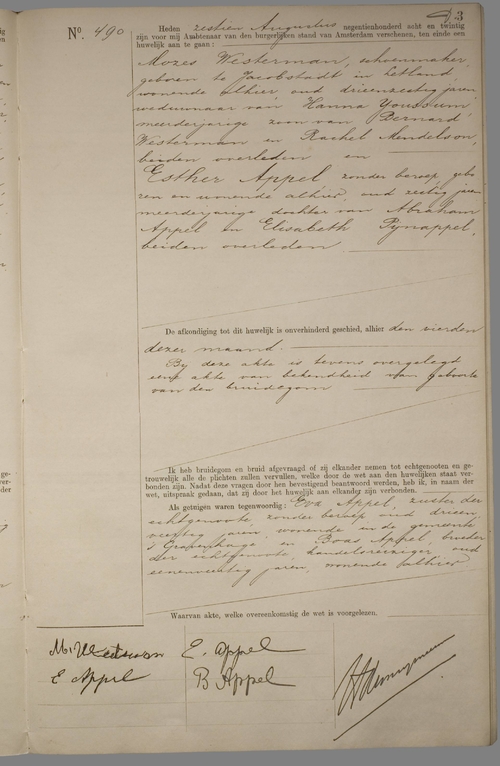 3
Nº. 490
Heden zestien Augustus negentienhonderd acht en twintig
zijn voor mij Ambtenaar van den burgerlijken stand van Amsterdam verschenen, ten einde een
huwelijk aan te gaan:
Mozes Westerman, schoenmaker,
geboren te Jacobstadt in Letland,
wonende alhier, oud drieenzestig jaren
weduwnaar van Hanna Youssum,
meerderjarige zoon van Bernard
Westerman en Rachel Mendelson,
beiden overleden en
Esther Appel zonder beroep, gebo
ren en wonende alhier, oud zestig jaren
meerderjarige dochter van Abraham
Appel en Elisabeth Pynappel,
beiden overleden
De afkondiging tot dit huwelijk is onverhinderd geschied, alhier den vierden
dezer maand.
By deze akte is tevens overgelegd
eene akte van bekendheid van geboorte
van den bruidegom
Ik heb bruidegom en bruid afgevraagd of zij elkander nemen tot echtgenooten en ge-
trouwelijk alle de plichten zullen vervullen, welke door de wet aan den huwelijken staat ver-
bonden zijn. Nadat deze vragen door hen bevestigend beantwoord werden, heb ik, in naam der
wet, uitspraak gedaan, dat zij door het huwelijk aan elkander zijn verbonden.
Als getuigen waren tegenwoordig: Eva Appel, zuster der
echtgenoote, zonder beroep oud drieen
veertig jaren, wonende in de gemeente
's Gravenhage en Boas Appel, broeder
der echtgenoote, handelsreiziger oud
eenenveertig jaren, wonende alhier
Waarvan akte, welke overeenkomstig de wet is voorgelezen.
M. Westerman E. Appel
E Appel B Appel